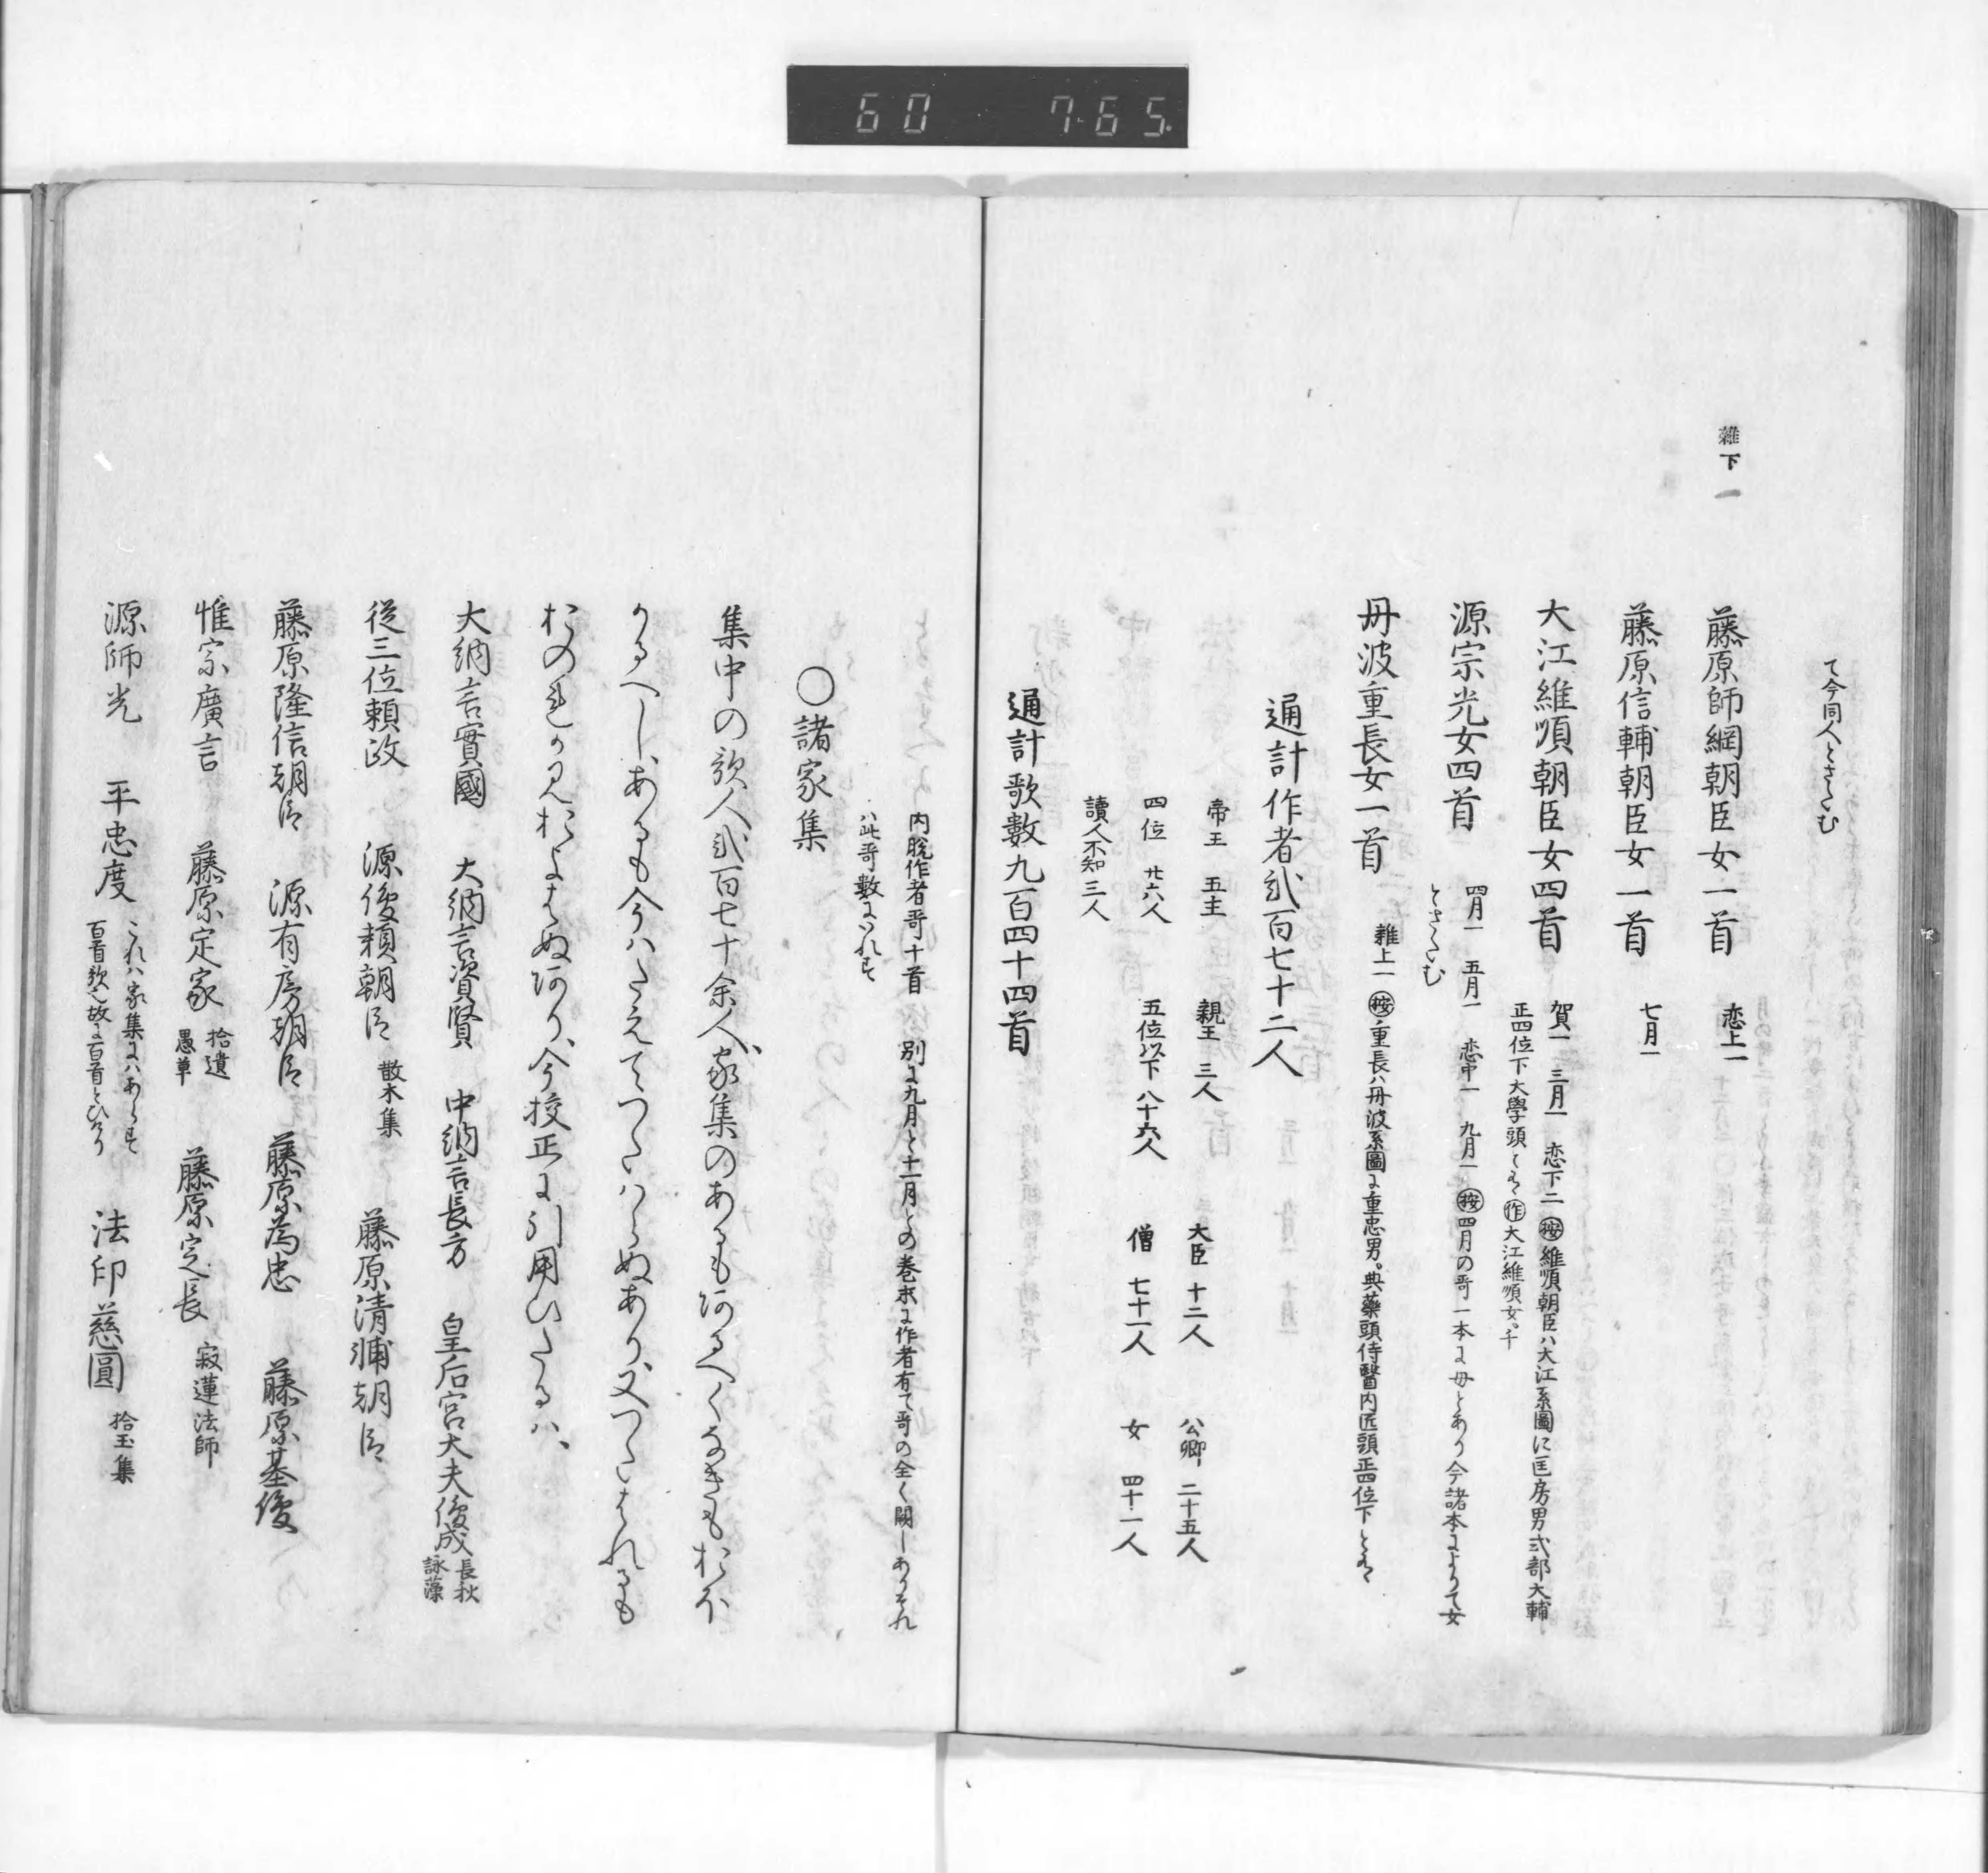 60 7-65.
て今同人とさたむ
雜下一
藤原師綱朝臣女一首 恋上一
藤原信輔朝臣女一首 七月一
大江維順朝臣女四首 賀一 三月一 恋下二 按維順朝臣ハ大江系圖に匡房男式部大輔
正四位下大學頭とみゆ 作大江維順女。千
源宗光女四首 四月一 五月一 恋中一 九月一 按四月の哥一本に母とあり今諸本によりて女
とさたむ
丹波重長女一首 雜上一 按重長ハ丹波系圖に重忠男。典藥頭侍醫内匠頭正四位下とみゆ
通計作者弐百七十二人
帝王 五主 親王 三人 大臣 十二人 公卿 二十五人
四位 廿六人 五位以下 八十六人 僧 七十一人 女 四十一人
讀人不知 三人
通計歌數九百四十四首
内脱作者哥十首 別に九月と十一月との巻末に作者有て哥の全く闕しありそれ
ハ此哥數にいれす
〇諸家集
集中の歌人弐百七十余人、家集のあるも沢るへくなきもおほ
かるへし、あるも今ハたえてつたハらぬあり、又つたはれるも
おのれか見およはぬ阿り、今挍正に引用ひたるハ、
大納言實國 大納言資賢 中納言長方 皇后宮大夫俊成 長秋詠藻
従三位頼政 源俊頼朝臣 散木集 藤原清輔朝臣
藤原隆信朝臣 源有房朝臣 藤原為忠 藤原基俊
惟宗廣言 藤原定家 拾遺愚草 藤原定長 寂蓮法師
源師光 平忠度 これハ家集にハあらす百首歌也故に百首とひけり 法印慈圓 拾玉集